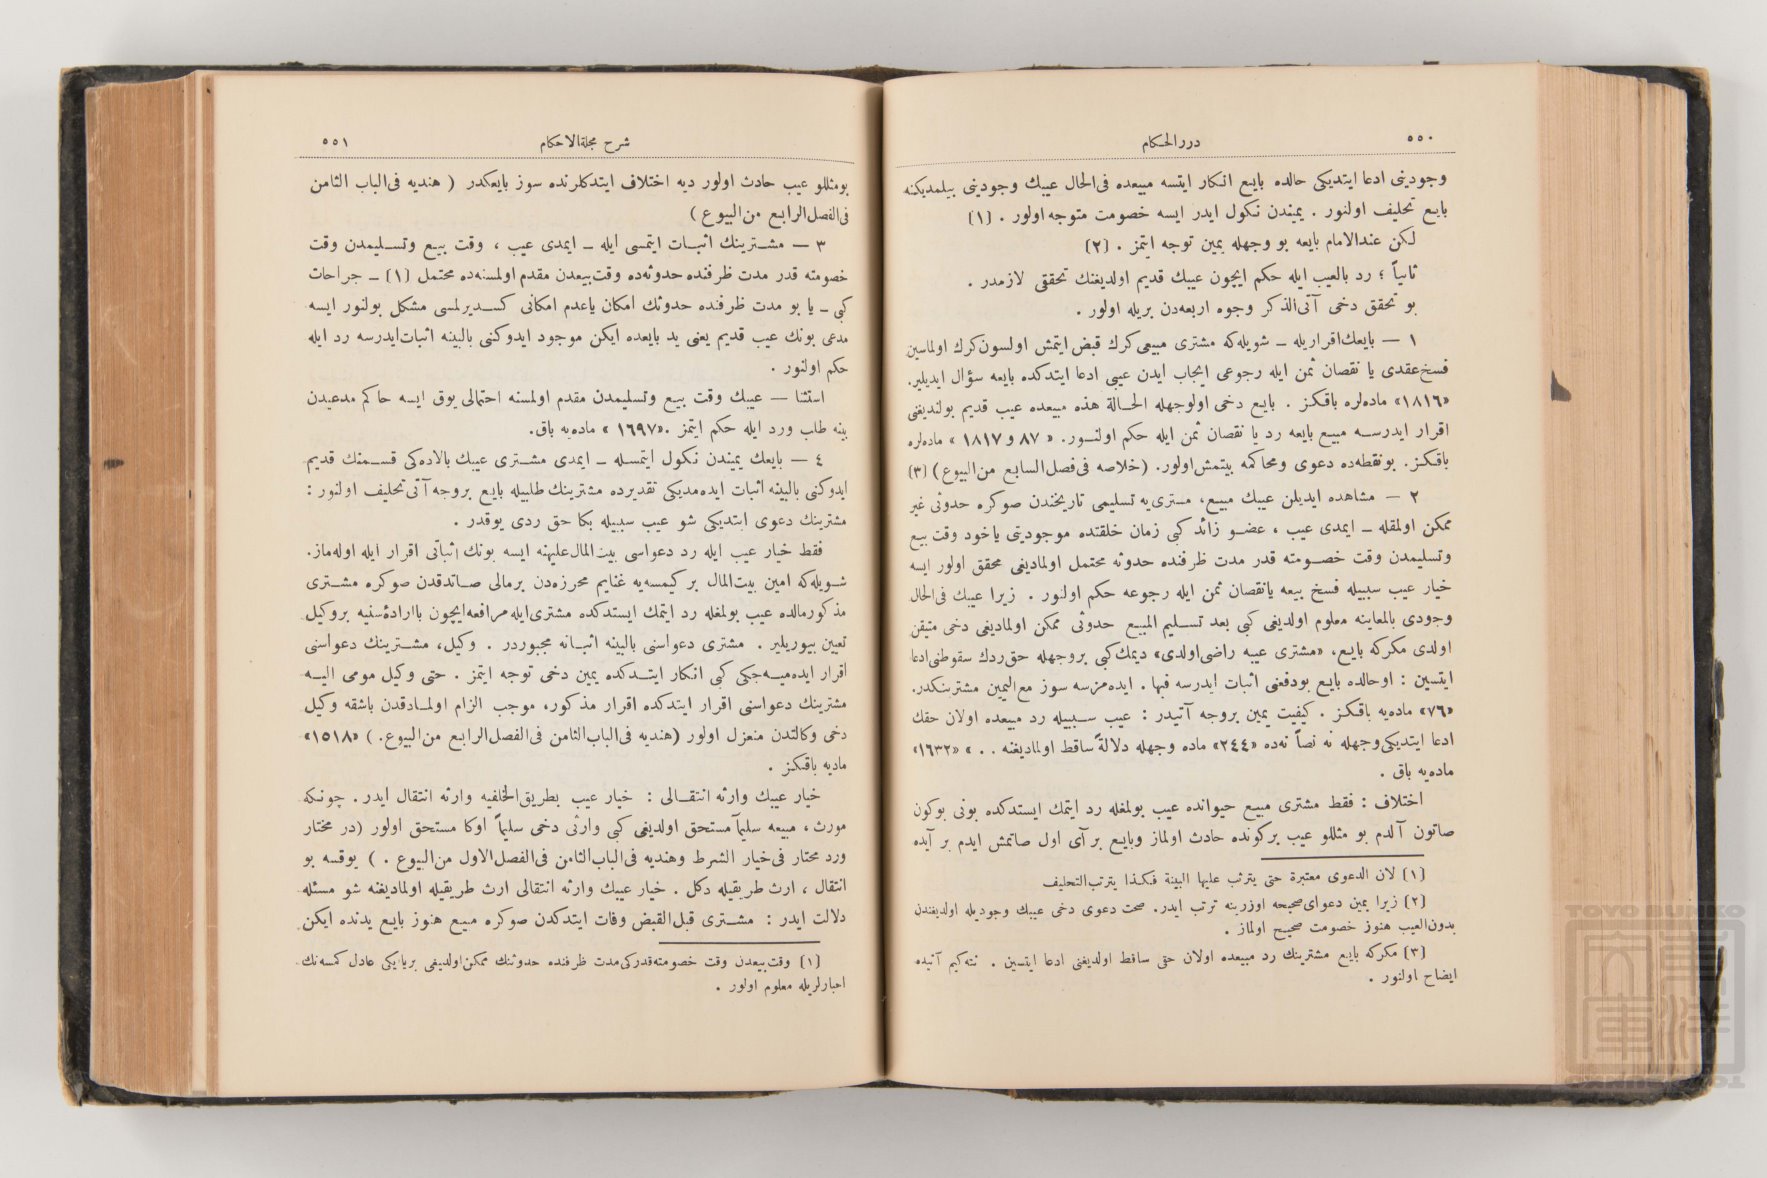 ٥٥٠
دررالحكام
وجودينى ادعا ايتديكى حالده بايع انكار ايتسه مبيعده فى‌الحال عيبك وجودينى بيلمديكنه
بايع تحليف اولنور . يميندن نكول ايدر ايسه خصومت متوجه اولور . (١)
لكن عندالامام بايعه بو وجهله يمين توجه ايتمز . (٢)
ثانياً ؛ رد بالعيب ايله حكم ايچون عيبك قديم اولديغنك تحققى لازمدر .
بو تحقق دخى آتى‌الذكر وجوه اربعه‌دن بريله اولور .
١ — بايعك اقراريله ـ شويله‌كه مشترى مبيعى كرك قبض ايتمش اولسون كرك اولماسين
فسخ عقدى يا نقصان ثمن ايله رجوعى ايجاب ايدن عيبى ادعا ايتدكده بايعه سؤال ايديلير.
«١٨١٦» ماده‌لره باقكز . بايع دخى اولوجهله الحالة هذه مبيعده عيب قديم بولنديغنى
اقرار ايدرسه مبيع بايعه رد يا نقصان ثمن ايله حكم اولنور. « ٨٧ و ١٨١٧ » ماده‌لره
باقكز. بونقطه‌ده دعوى ومحاكمه بيتمش‌اولور. (خلاصه فى‌فصل‌السابع من‌البيوع) (٣)
٢ — مشاهده ايديلن عيبك مبيع، مسترى‌يه تسليمى تاريخندن صوكره حدوثى غير
ممكن اولمقله ـ ايمدى عيب ، عضو زائد كبى زمان خلقتنده موجوديتى ياخود وقت بيع
وتسليمدن وقت خصومته قدر مدت ظرفنده حدوثه محتمل اولماديغى محقق اولور ايسه
خيار عيب سببيله فسخ بيعه يانقصان ثمن ايله رجوعه حكم اولنور . زيرا عيبك فى‌الحال
وجودى بالمعاينه معلوم اولديغى كبى بعد تسليم المبيع حدوثى ممكن اولماديغى دخى متيقن
اولدى مكركه بايع، «مشترى عيبه راضى‌اولدى» ديمك‌كبى بروجهله حق‌ردك سقوطنى‌ادعا
ايتسين : اوحالده بايع بودفعنى اثبات ايدرسه فبها . ايده‌مزسه سوز مع‌اليمين مشترينكدر.
«٧٦» ماده‌يه باقكز . كيفيت يمين بروجه آتيدر : عيب سببيله رد مبيعده اولان حقك
ادعا ايتديكى‌وجهله نه نصاً نه‌ده «٢٤٤» ماده وجهله دلالةً ساقط اولماديغنه . . » «١٦٣٢»
ماده‌يه باق .
اختلاف : فقط مشترى مبيع حيوانده عيب بولمغله رد ايتمك ايستدكده بونى بوكون
صاتون آلدم بو مثللو عيب بركونده حادث اولماز وبايع بر آى اول صاتمش ايدم بر آيده
(١) لان الدعوى معتبرة حتى يترتب عليها البينة فكذا يترتب‌التحليف
(٢) زيرا يمين دعواى‌صحيحه اوزرينه ترتب ايدر. صحت دعوى دخى عيبك وجوديله اولديغندن
بدون‌العيب هنوز خصومت صحيح اولماز .
(٣) مكركه بايع مشترينك رد مبيعده اولان حتى ساقط اولديغنى ادعا ايتسين . نته‌كيم آتيده
ايضاح اولنور .
شرح مجلةالاحكام
٥٥١
بومثللو عيب حادث اولور ديه اختلاف ايتدكلرنده سوز بايعكدر ( هنديه فى‌الباب الثامن
فى‌الفصل‌الرابع من‌البيوع)
٣ — مشترينك اثبات ايتمسى ايله ـ ايمدى عيب ، وقت بيع وتسليمدن وقت
خصومته قدر مدت ظرفنده حدوثه‌ده وقت‌بيعدن مقدم اولمسنه‌ده محتمل (١) ـ جراحات
كبى ـ يا بو مدت ظرفنده حدوثك امكان ياعدم امكانى كسديرلمسى مشكل بولنور ايسه
مدعى بونك عيب قديم يعنى يد بايعده ايكن موجود ايدوكنى بالبينه اثبات‌ايدرسه رد ايله
حكم اولنور .
استثنا — عيبك وقت بيع وتسليمدن مقدم اولمسنه احتمالى يوق ايسه حاكم مدعيدن
بينه طلب ورد ايله حكم ايتمز .«١٦٩٧ » ماده‌يه باق.
٤ — بايعك يميندن نكول ايتمسله ـ ايمدى مشترى عيبك بالاده‌كى قسمنك قديم
ايدوكنى بالبينه اثبات ايده‌مديكى تقديرده مشترينك طلبيله بايع بروجه آتى‌تحليف اولنور :
مشترينك دعوى ايتديكى شو عيب سببيله بكا حق ردى يوقدر .
فقط خيار عيب ايله رد دعواسى بيت‌المال‌عليهنه ايسه بونك اثباتى اقرار ايله اوله‌ماز.
شويله‌كه امين بيت‌المال بر كيمسه‌يه غنايم محرزه‌دن برمالى صاتدقدن صوكره مشترى
مذكورمالده عيب بولمغله رد ايتمك ايستدكده مشترى‌ايله‌مرافعه‌ايچون باارادۀسنيه بروكيل
تعيين بيوريلير . مشترى دعواسنى بالبينه اثباته مجبوردر . وكيل، مشترينك دعواسنى
اقرار ايده‌ميه‌جكى كبى انكار ايتدكده يمين دخى توجه ايتمز . حتى وكيل مومى اليه
مشترينك دعواسنى اقرار ايتدكده اقرار مذكور، موجب الزام اولمادقدن باشقه وكيل
دخى وكالتدن منعزل اولور (هنديه فى‌الباب‌الثامن فى‌الفصل‌الرابع من‌البيوع. ) «١٥١٨»
ماديه باقكز .
خيار عيبك وارثه انتقالى : خيار عيب بطريق‌الخلفيه وارثه انتقال ايدر . چونكه
مورث ، مبيعه سليمآ مستحق اولديغى كبى وارثى دخى سليماً اوكا مستحق اولور (در مختار
ورد محتار فى‌خيار الشرط وهنديه فى‌الباب‌الثامن فى‌الفصل‌الاول من‌البيوع . ) يوقسه بو
انتقال ، ارث طريقيله دكل . خيار عيبك وارثه انتقالى ارث طريقيله اولماديغنه شو مسئله
دلالت ايدر : مشترى قبل‌القبض وفات ايتدكدن صوكره مبيع هنوز بايع يدنده ايكن
(١) وقت‌بيعدن وقت خصومته‌قدركى‌مدت ظرفنده حدوثنك ممكن‌اولديغى برياايكى عادل كمسه‌نك
اخبارلريله معلوم اولور .